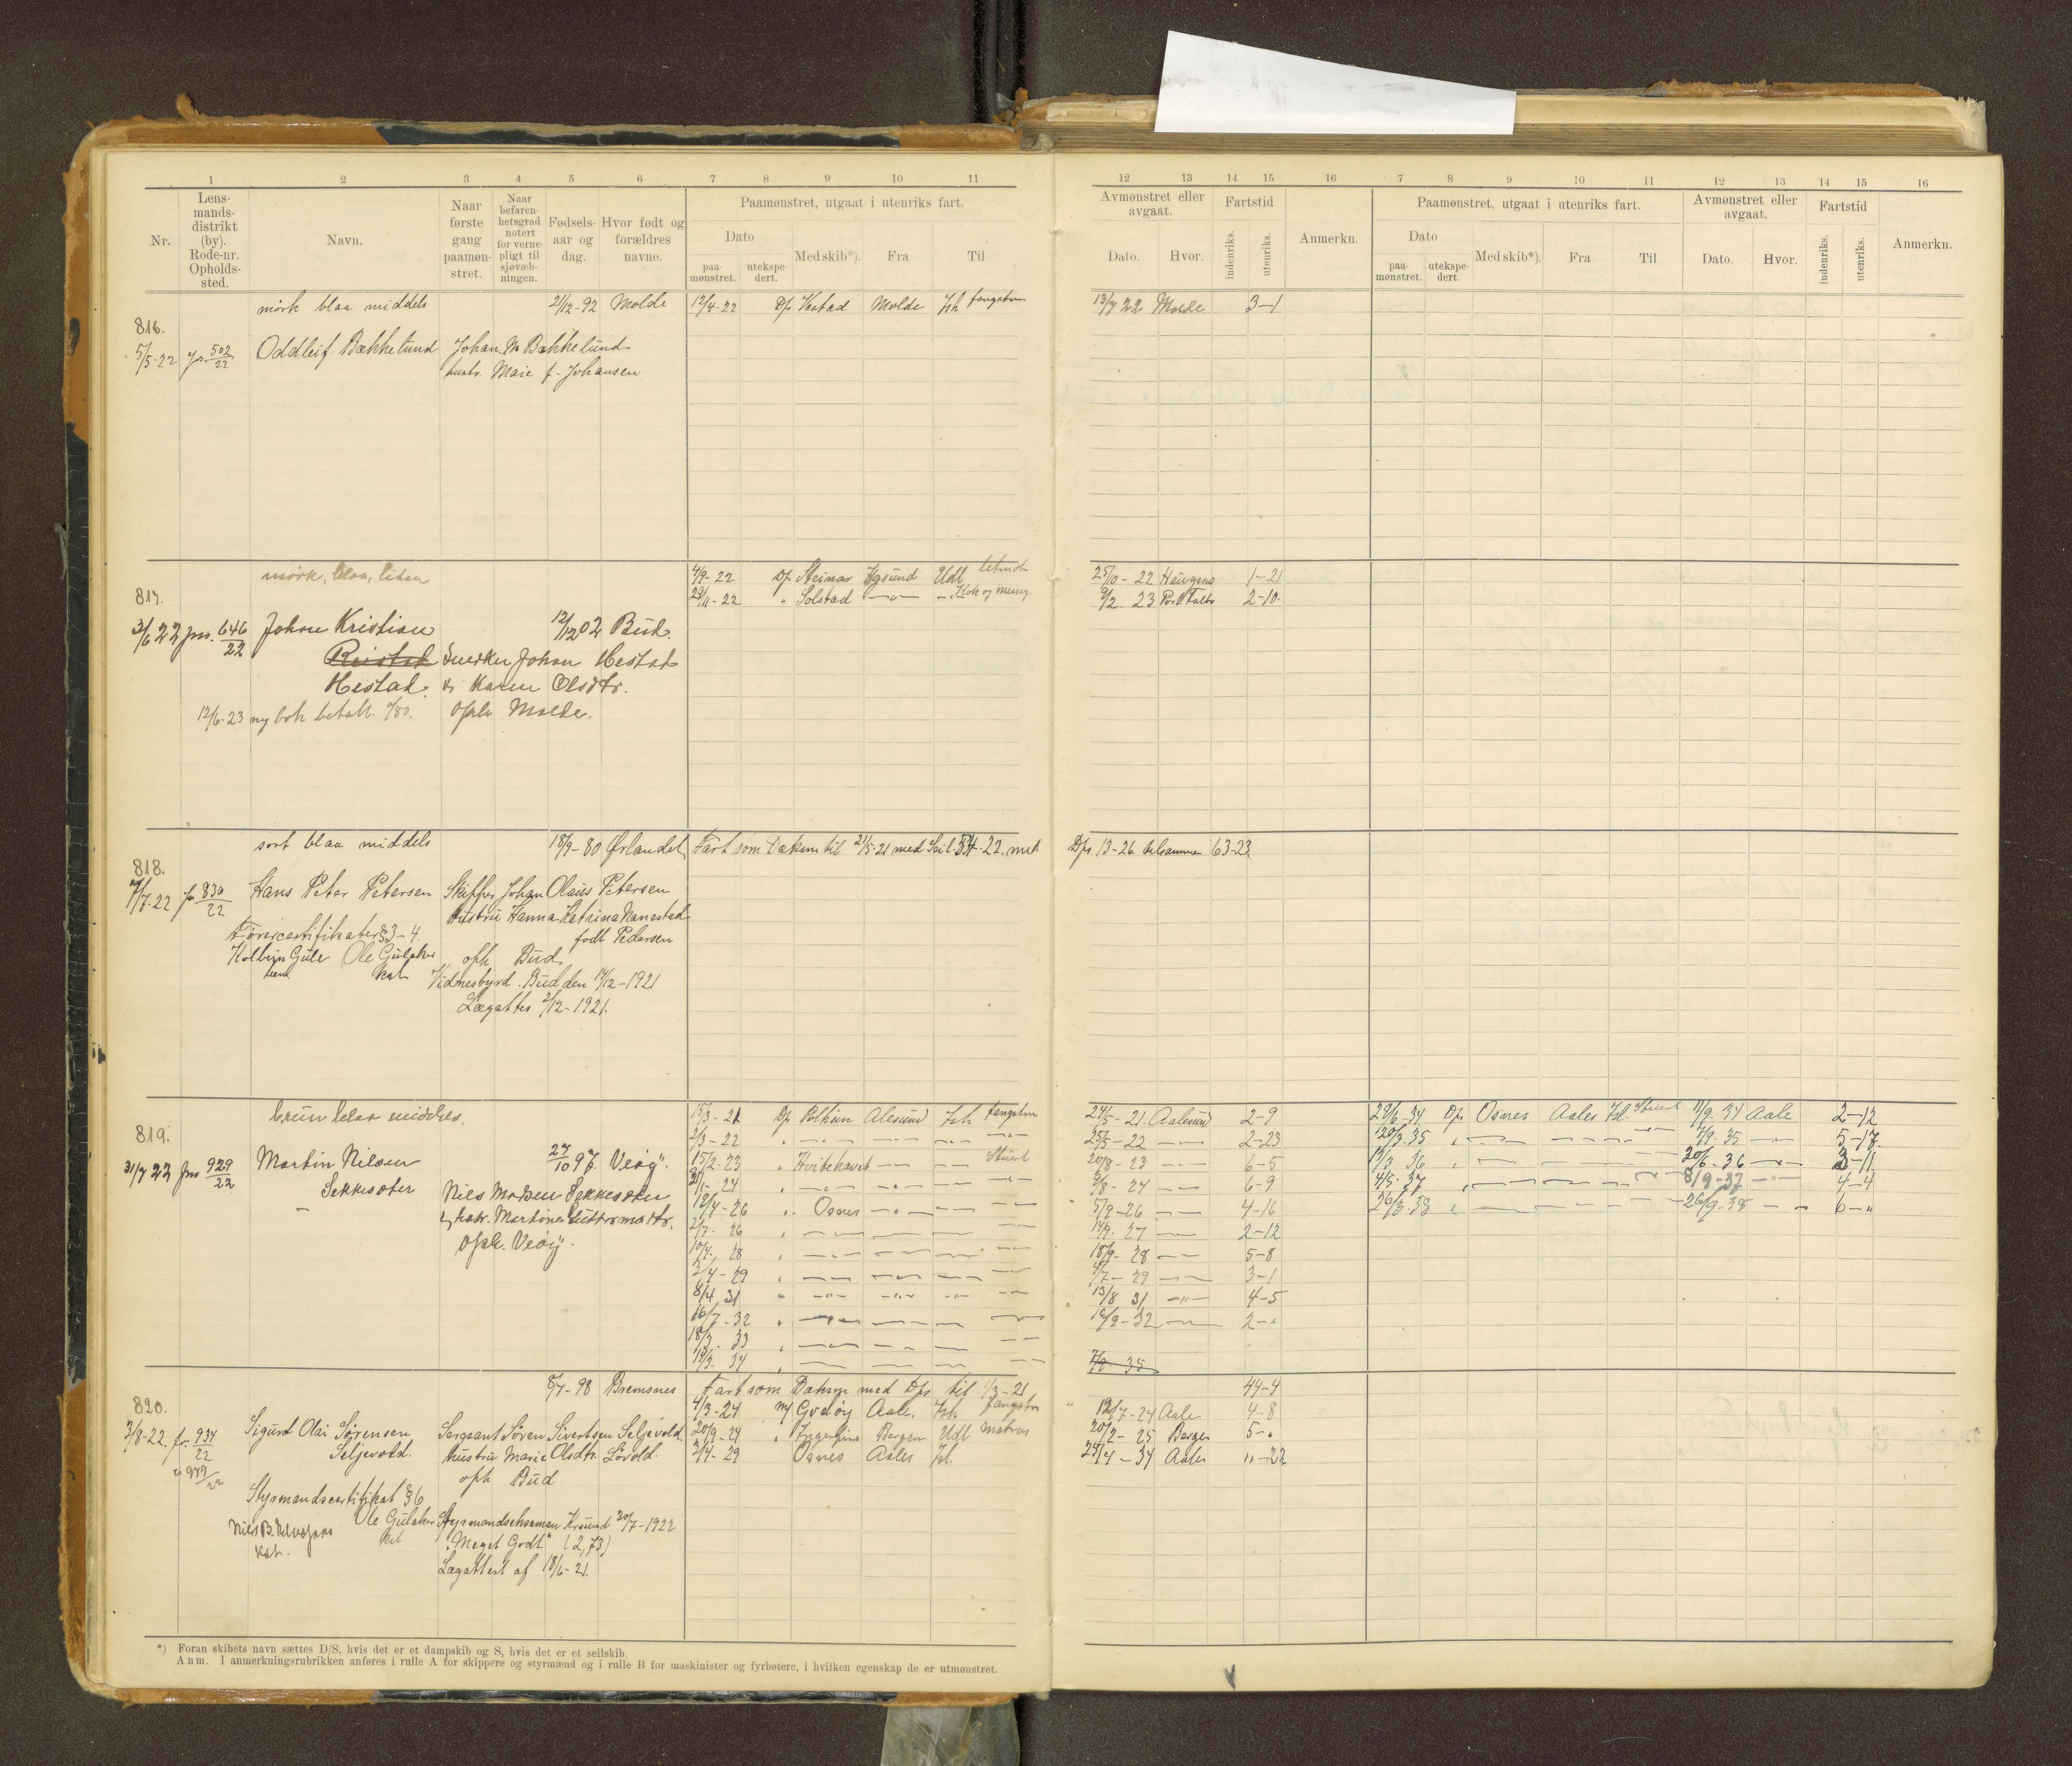 1 2 3 4 5 6 7 8 9 10 11
Nr. Lens-mands-distrikt (by). Rode-nr. Opholds-sted. Navn. Naar første gang paamøn-stret. Naar befaren-hetsgrad notert for verne-pligt til sjøvæb-ningen. Fødsels-aar og dag. Hvor født og forældres navne. Paamønstret, utgaat i utenriks fart.
Dato paa-mønstret. utekspe-dert. Med skib*). Fra Til
12 13 14 15 16 7 8 9 10 11 12 13 14 15 16
Avmønstret eller avgaat. Fartstid Anmerkn. Paamønstret, utgaat i utenriks fart. Avmønstret eller avgaat. Fartstid Anmerkn.
Dato. Hvor. indenriks. utenriks. Dato paa-mønstret. utekspe-dert. Med skib*). Fra Til Dato. Hvor. indenriks. utenriks.
mörk blaa middels 21/12-92 Molde 12/4-22 Dp Vestad Molde Ish fangstm 13/7 22 Molde 3-1
816.
5/5-22 jr. 502/22 Oddleif Bækkelund Johan M Bækkelund
hustr. Maie f. Johansen
mörk, blaa, liten 4/9-22 Dp Steinar Kgsund Udl letmatr 25/10-22 Haugesu 1-21
817. 29/11-22 " Solstad 9/2 23 Port Talbo 2-10.
3/6 22 jnr. 646/22 Johan Kristian 12/12 02 Bud.
Reistad Snedker Johan Hestad
Hestad. h Karen Olsdtr.
12/6-23 ny bok betalt /80. Oph Molde.
sort blaa middels 18/9-80 Ørlandet Fart som Dæksm til 21/5-21 med Seil. 54-22. med Dps 13-26 tilsammen 63-23.
818.
7/7-22 jr 830/22 Hans Peter Petersen Skipper Johan Olaus Petersen
Hustru Hanna Katrina Nanestad
Förercertifikater §3-4. födt Pedersen
Ole Gulaker oph Bud
kat Vidnesbyrd. Bud den 14/12-1921
Lægattes 2/12-1921.
brun blaa middels. 15/3-21 Dp Polhim Alesund Ish fangstm 24/5-21. Aalesund 2-9 29/6-34 Dp Osnes Aales Isl. Stuert 11/9. 34 Aale 2-12
819. 2/3-22 25/5-22 2-23 20/3. 35 7/9. 35 5-17.
31/7 22 jnr 929/22 Martin Nilsen 27/10 97. Veöy. 15/2. 23 " Hvitehavet Stuert 20/8-23 6-5 36 20/6. 36 3-11
Sekkesæter Nils Madsen Sekkesæter -24 5/8-24 6-9 4/5. 37 8/9-37 4-4
hstr. Martine Guttormsdtr. 12/4-26 " Osnes 5/9-26 4-16 26/3. 38 26/9. 38 6-"
Oph. Veöy. 2/7. 26 27 2-12
10/4. 28 18/9. 28 5-8
3/4-29 4/7-29 3-1
8/4 31 13/8 31 4-5
16/7-32 16/9-32 2-"
18/3. 33
14/3. 34 7/9. 35
8/7-98 Bremsnes Fart som Dæksm med Dps til 1/3-21 44-4
820. 4/3-24 m/ Godöy Aale. Ish. fangstm 12/7-24 Aale 4-8
3/8-22. jr. 934/22 Sigurd Olai Sörensen Sersgant Sören Sivertsen Seljevold. 20/9-24 " Ingerfire Bergen Udl Matros 20/2-25 Bergen 5-"
Seljevold. Hustru Marie Olsdtr. Lövold. 3/4-29 Osnes Aales Isl. 25/4-34 Aales "-22
949/22 oph Bud
Styrmandscertifikat §6
Ole Gulaker Styrmandseksamen Krsund 30/7-1922
kat "Meget Godt" (2,73)
Kat. Lægattest af 18/6-21.
*) Foran skibets navn sættes D/S, hvis det er et dampskib og S, hvis det er et seilskib.
Anm. I anmerkningsrubrikken anføres i rulle A for skippere og styrmænd og i rulle B for maskinister og fyrbøtere, i hvilken egenskap de er utmønstret.